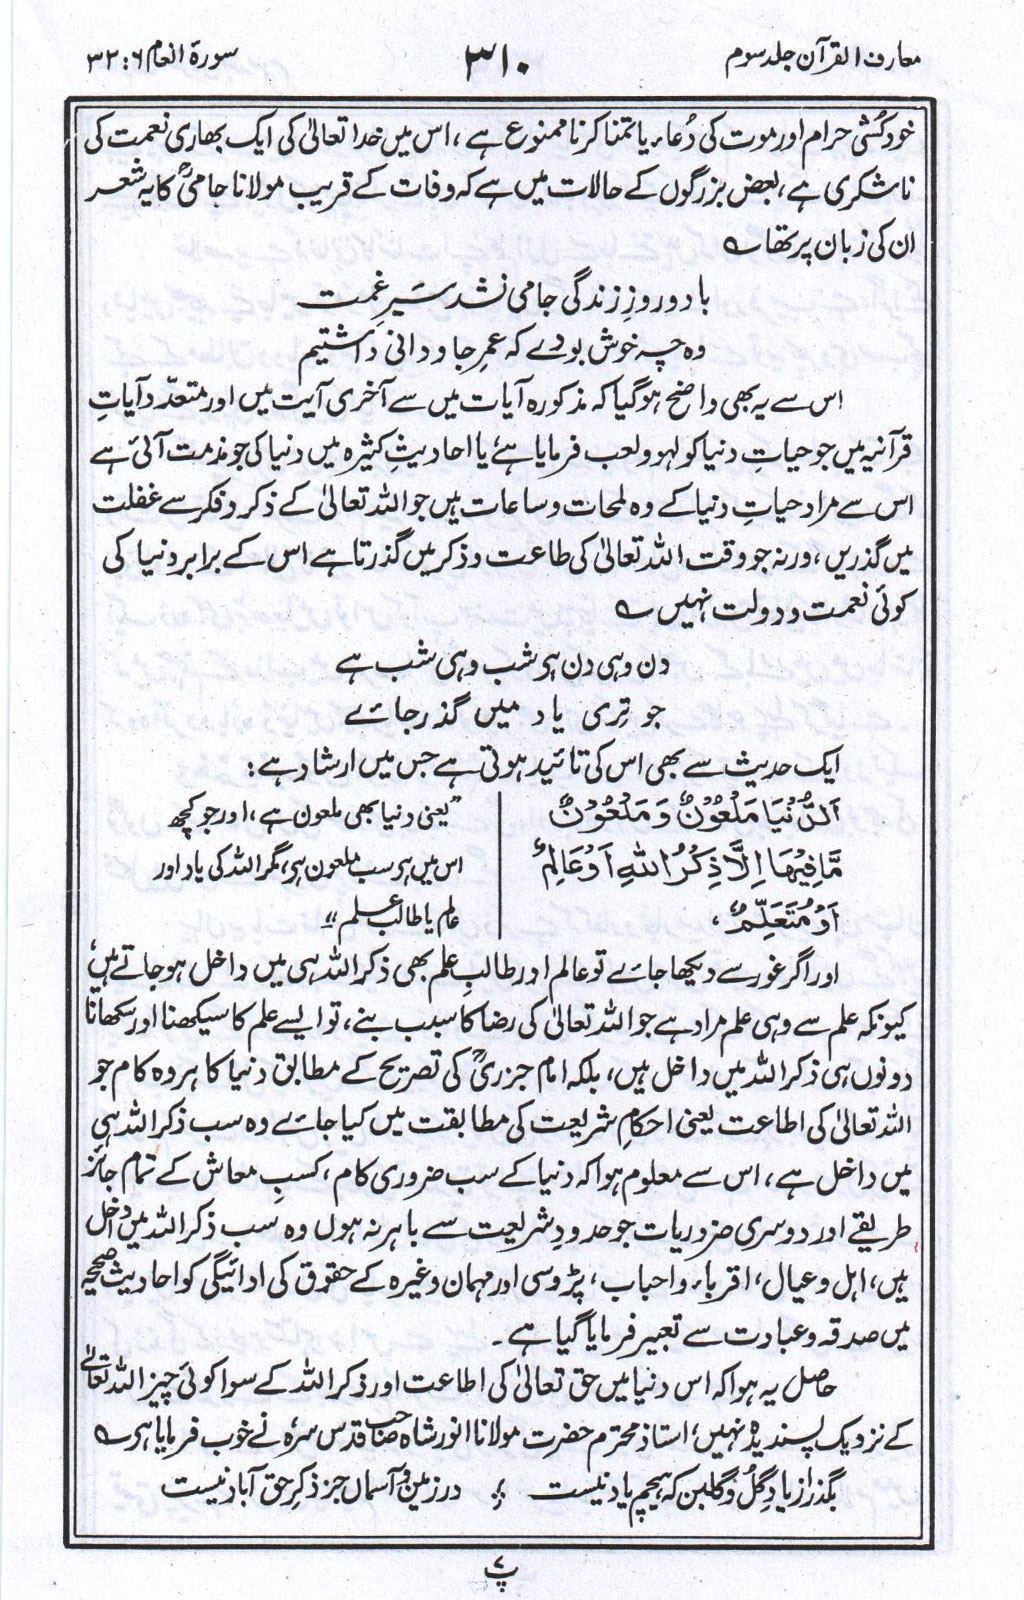 معارف القرآن جلد سوم
۳۱۰
سورۃ انعام ۶ : ۳۲
خودکُشی حرام اور موت کی دُعاء یا تمنا کرنا ممنوع ہے، اس میں خدا تعالیٰ کی ایک بھاری نعمت کی
ناشکری ہے، بعض بزرگوں کے حالات میں ہے کہ وفات کے قریب مولانا جامیؒ کا یہ شعر
ان کی زبان پر تھا ؎
با دو روزِ زندگی جامی نشد سیر غمت
وہ چہ خوش بودے کہ عمرِ جاودانی داشتیم
اس سے یہ بھی واضح ہوگیا کہ مذکورہ آیات میں سے آخری آیت میں اور متعدّد آیاتِ
قرآنیہ میں جو حیاتِ دنیا کو لہو و لعب فرمایا ہے، یا احادیثِ کثیرہ میں دنیا کی جو مذمت آئی ہے
اس سے مراد حیاتِ دنیا کے وہ لمحات و ساعات ہیں جو اللہ تعالیٰ کے ذکر و فکر سے غفلت
میں گذریں، ورنہ جو وقت اللہ تعالیٰ کی طاعت و ذکر میں گذرتا ہے اس کے برابر دنیا کی
کوئی نعمت و دولت نہیں ؎
دن وہی دن ہر شب وہی شب ہے
جو تِری یاد میں گذر جائے
ایک حدیث سے بھی اس کی تائید ہوتی ہے جس میں ارشاد ہے :
اَلدُّنْیَا مَلْعُوْنٌ وَمَلْعُوْنٌ
مَّا فِیْھَا اِلَّا ذِکْرُ اللہِ اَوْ عَالِمٌ
اَوْ مُتَعَلِّمٌ ،
”یعنی دنیا بھی ملعون ہے، اور جو کچھ
اس میں ہر سب ملعون ہر، مگر اللہ کی یاد اور
عالم یا طالب علم“
اور اگر غور سے دیکھا جائے تو عالم اور طالبِ علم بھی ذکر اللہ ہی میں داخل ہو جاتے ہیں،
کیونکہ علم سے وہی علم مراد ہے جو اللہ تعالیٰ کی رضا کا سبب بنے، تو ایسے علم کا سیکھنا اور سکھانا
دونوں ہی ذکر اللہ میں داخل ہیں، بلکہ امام جزریؒ کی تصریح کے مطابق دنیا کا ہر وہ کام جو
اللہ تعالیٰ کی اطاعت یعنی احکامِ شریعت کی مطابقت میں کیا جائے وہ سب ذکر اللہ ہی
میں داخل ہے، اس سے معلوم ہوا کہ دنیا کے سب ضروری کام، کسبِ معاش کے تمام جائز
طریقے اور دوسری ضروریات جو حدودِ شریعت سے باہر نہ ہوں وہ سب ذکر اللہ میں داخل
ہیں، اہل و عیال، اقرباء و احباب، پڑوسی اور مہمان وغیرہ کے حقوق کی ادائیگی کو احادیث صحیحہ
میں صدقہ و عبادت سے تعبیر فرمایا گیا ہے۔
حاصل یہ ہوا کہ اس دنیا میں حق تعالیٰ کی اطاعت اور ذکر اللہ کے سوا کوئی چیز اللہ تعالیٰ
کے نزدیک پسندیدہ نہیں، استاذ محترم حضرت مولانا انور شاہ صاحب قدس سرہٗ نے خوب فرمایا ہر ؎
بگذر از یادِ گُل و گلبن کہ ہیچم یاد نیست ؛ در زمین و آسماں جز ذکرِ حق آباد نیست
پ ۷